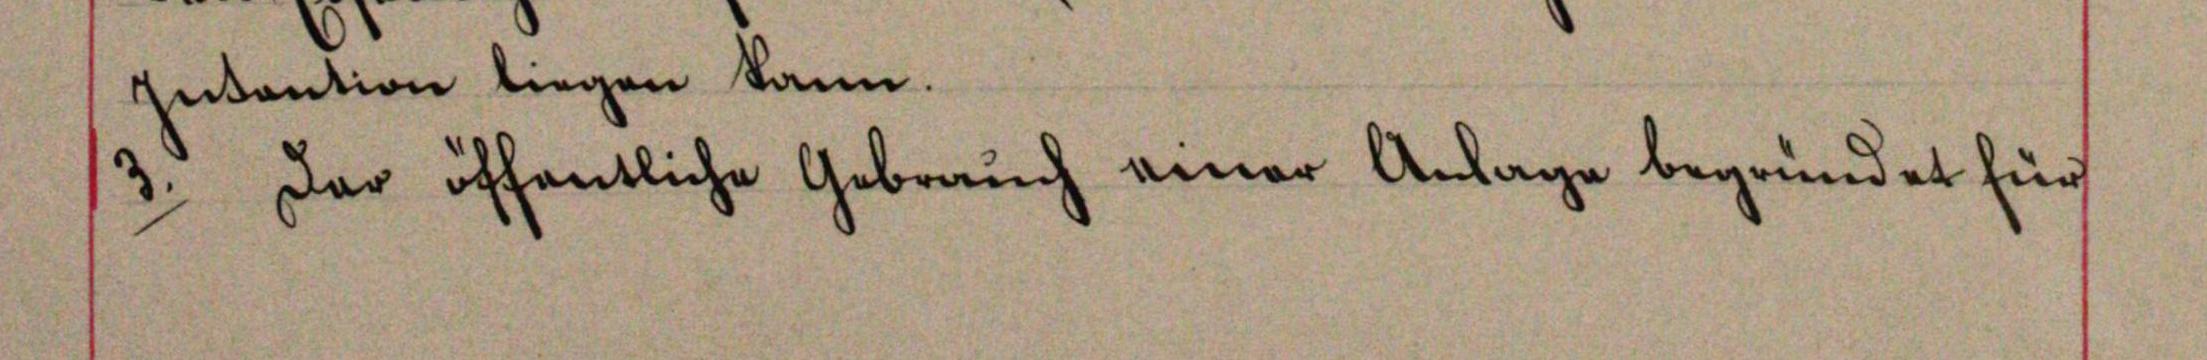 Intention liegen kann.
3. Der öffentliche Gebrauch einer Anlage begründet für